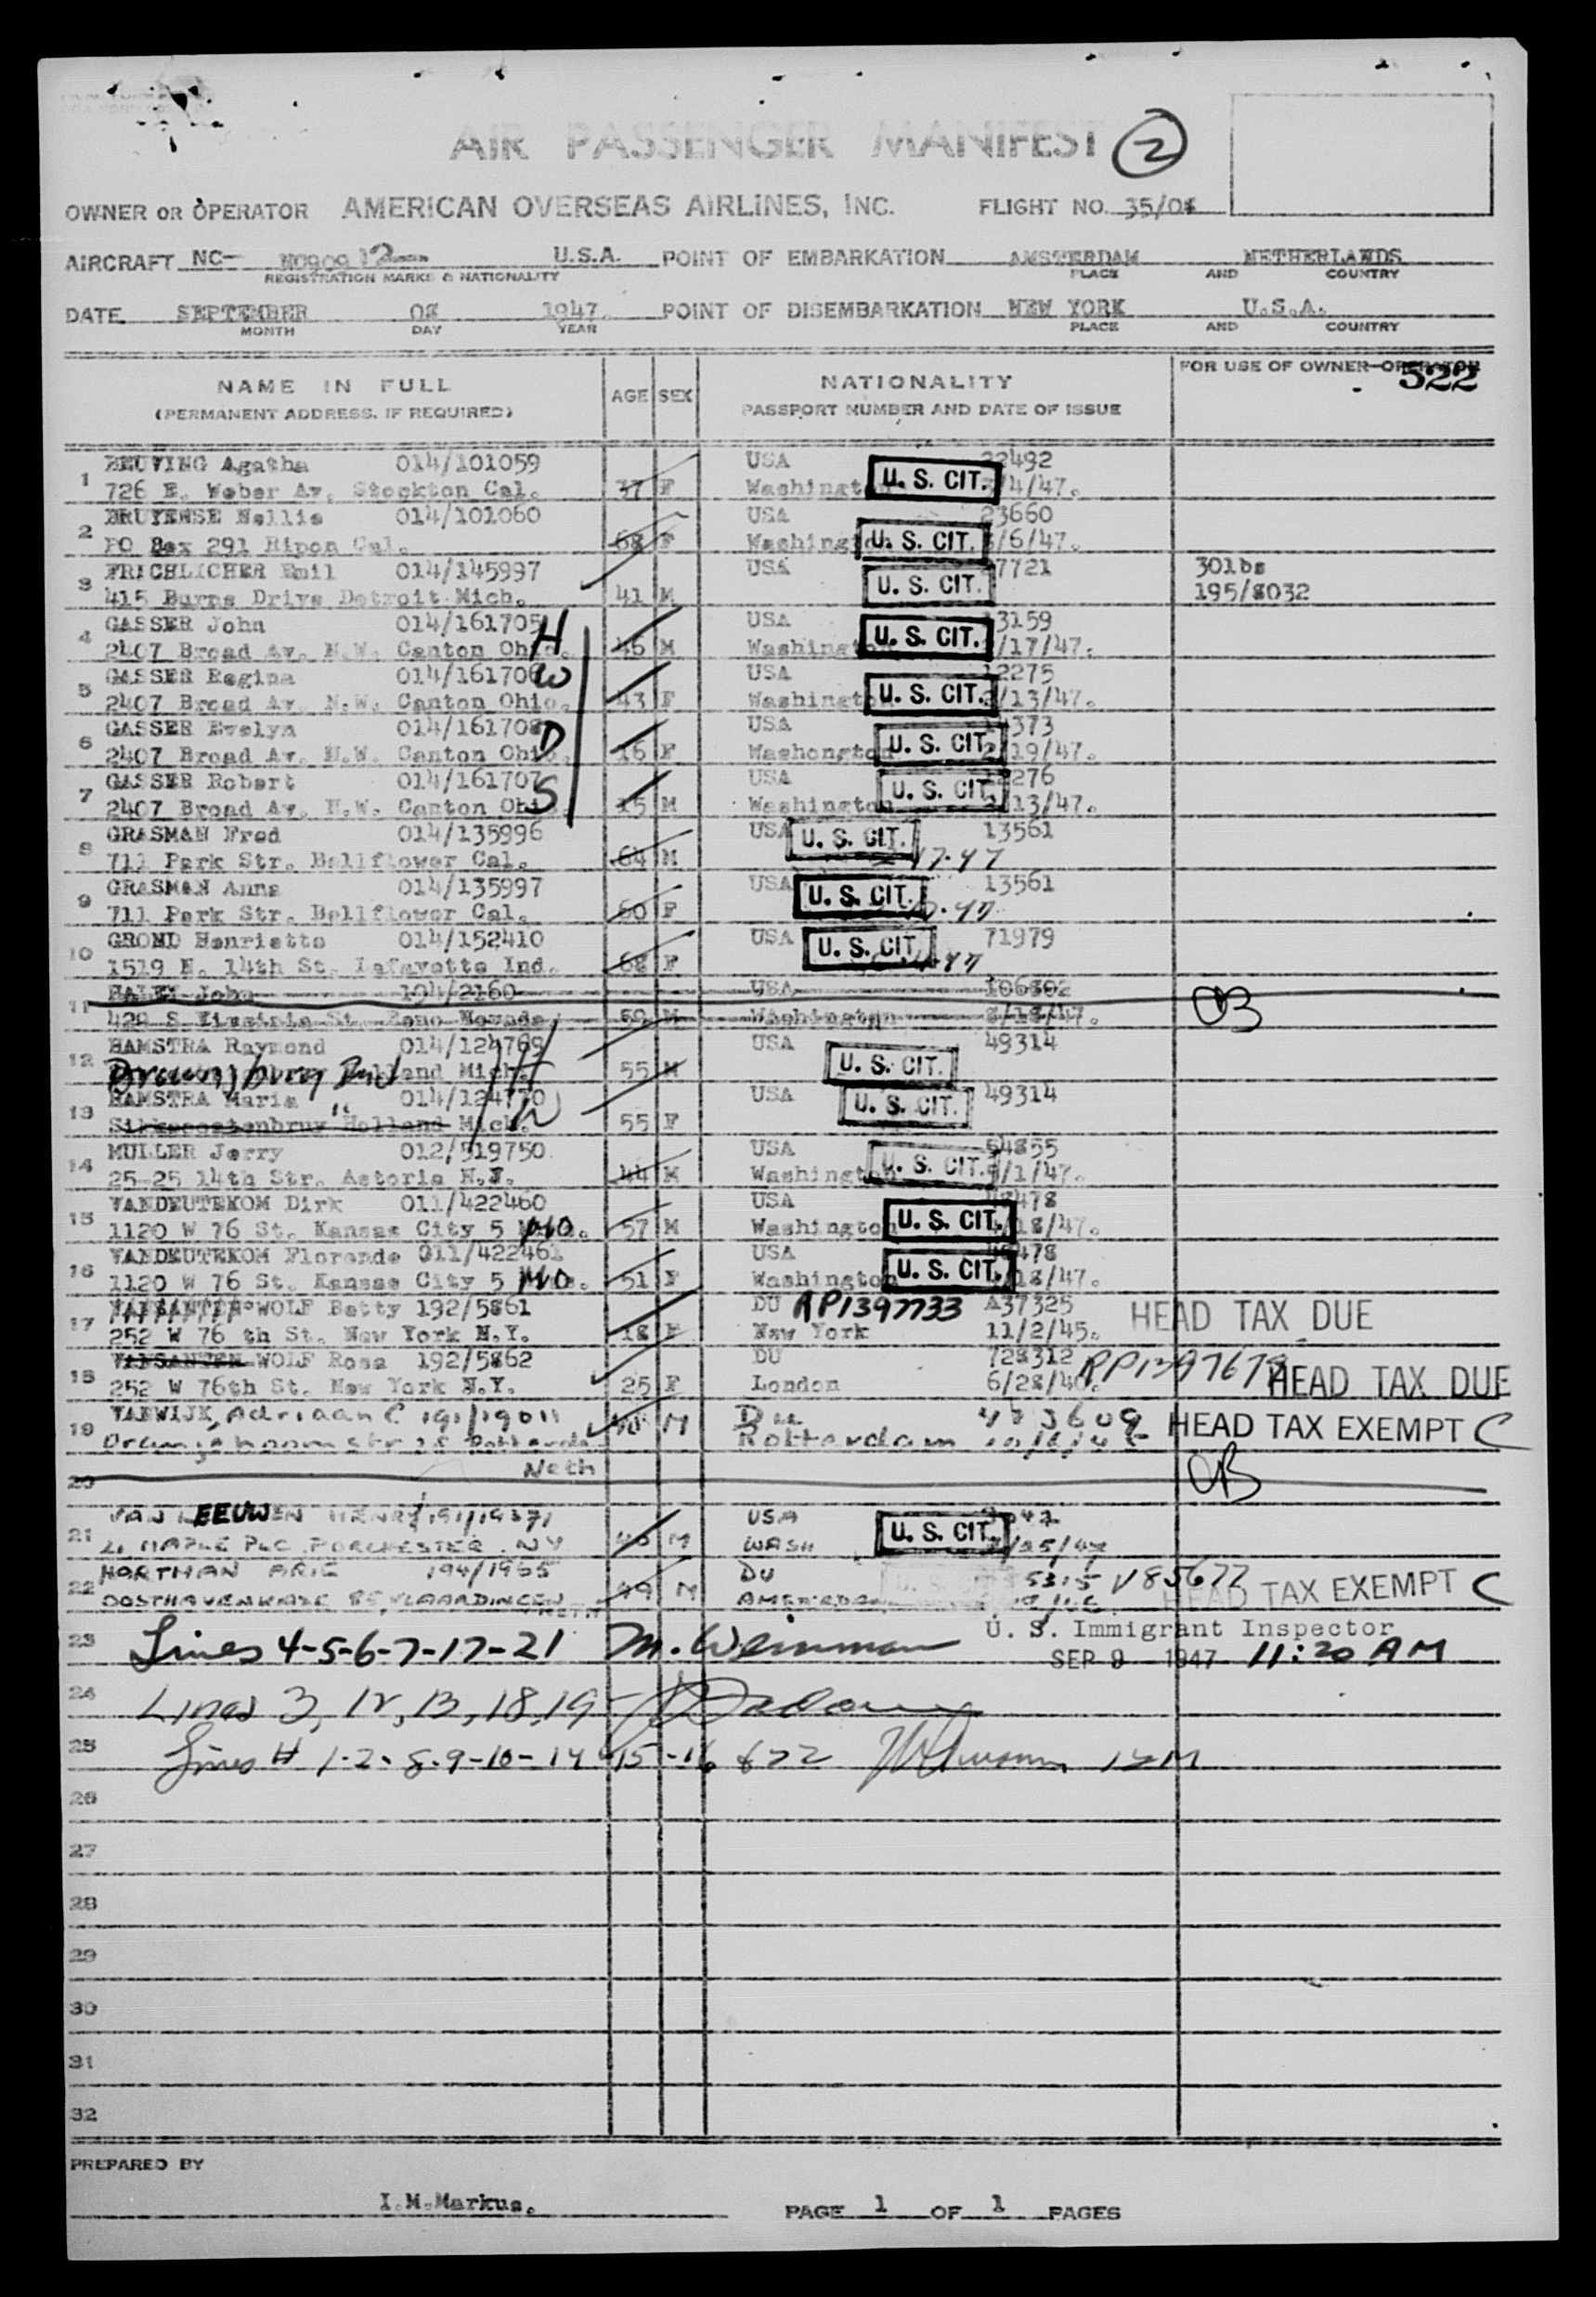 AIR PASSENGER MANIFEST 2
OWNER OR OPERATOR AMERICAN OVERSEAS AIRLINES, INC. FLIGHT NO. 35/0
AIRCRAFT NC- NC909 12 U.S.A. POINT OF EMBARKATION AMSTERDAM NETHERLANDS
REGISTRATION MARKS & NATIONALITY PLACE AND COUNTRY
DATE SEPTEMBER 08 1947. POINT OF DISEMBARKATION NEW YORK U.S.A.
MONTH DAY YEAR PLACE AND COUNTRY
NAME IN FULL AGE SEX NATIONALITY FOR USE OF OWNER-OPERATOR
522
(PERMANENT ADDRESS, IF REQUIRED) PASSPORT NUMBER AND DATE OF ISSUE
Agatha 014/101059 USA 22492
1 726 E. Weber Av. Stockton Cal. 37 F Washingt U. S. CIT. /4/47.
BRUYENSE Nellie 014/101060 USA 23660
2 PO Box 291 Ripon Cal. 68 F Washingt U. S. CIT. /6/47.
FRICHLICHER Emil 014/145997 USA 7721 30lbs
3 415 Burns Drive Detroit Mich. 41 M U. S. CIT. 195/8032
GASSER John 014/161705 H USA 3159
4 2407 Broad Av. N.W. Canton Ohio. 46 M Washingt U. S. CIT. /17/47.
GASSER Regina 014/161706 W USA 12275
5 2407 Broad Av. N.W. Canton Ohio. 43 F Washingt U. S. CIT. /13/47.
GASSER Evelyn 014/161708 D USA 373
6 2407 Broad Av. N.W. Canton Ohio. 16 F Washongton U. S. CIT. 2/19/47.
GASSER Robert 014/161707 S USA 12276
7 2407 Broad Av. N.W. Canton Ohio. 15 M Washington U. S. CIT. /13/47.
GRASMAN Fred 014/135996 USA U. S. CIT. 13561
8 711 Park Str. Bellflower Cal. 64 M 17-47
GRASMAN Anna 014/135997 USA U. S. CIT. 13561
9 711 Park Str. Bellflower Cal. 60 F
GROND Henrietta 014/152410 USA U. S. CIT. 71979
10 1519 N. 14th St. Lafayette Ind. 68 F
HALEY John 194/2160 USA 106802
11 420 S Virginia St. Reno Nevada 59 M Washington 8/18/47. OB
HAMSTRA Raymond 014/124769 H USA 49314
12 Brownsburg Ind Mich. 55 M U. S. CIT.
HAMSTRA Maria 014/124770 W USA 49314
13 Holland Mich. 55 F U. S. CIT.
MULLER Jerry 012/519750 USA 54855
14 25-25 14th Str. Astoria 44 M Washington U. S. CIT. /1/47.
VANDEUTEKOM Dirk 011/422460 USA 48478
15 1120 W 76 St. Kansas City 5 MO. 57 M Washington U. S. CIT. /18/47.
VANDEUTEKOM Florende 011/422461 USA 48478
16 1120 W 76 St. Kansas City 5 MO. 51 F Washington U. S. CIT. /18/47.
VANSANTEN WOLF Betty 192/5861 DU RP1397733 A37325 HEAD TAX DUE
17 252 W 76 th St. New York N.Y. 18 F New York 11/2/45.
VANSANTEN WOLF Rosa 192/5862 DU 728312 RP1397678 HEAD TAX DUE
18 252 W 76th St. New York N.Y. 25 F London 6/28/40.
VANWIJK, Adriaan C 191/19011 M Du HEAD TAX EXEMPT C
19 Oranjeboomstr Rotterda Rotterdam
20 Neth OB
VAN LEEUWEN HENRY 191/19371 USA
21 21 MAPLE PLC. PORCHESTER. NY M WASH U. S. CIT. /25/47
HORTMAN ARIE 194/1955 DU 5315 V85677
22 OOSTHAVENKADE 85, VLAARDINGEN NETH 49 M HEAD TAX EXEMPT C
U. S. Immigrant Inspector
23 Lines 4-5-6-7-17-21 M. Weinman SEP 9 1947 11:20 AM
24 Lines 3, 12, 13, 18, 19
25 Lines # 1-2-8-9-10-14-15-16 & 22
26
27
28
29
30
31
32
PREPARED BY
I.M.Markus. PAGE 1 OF 1 PAGES